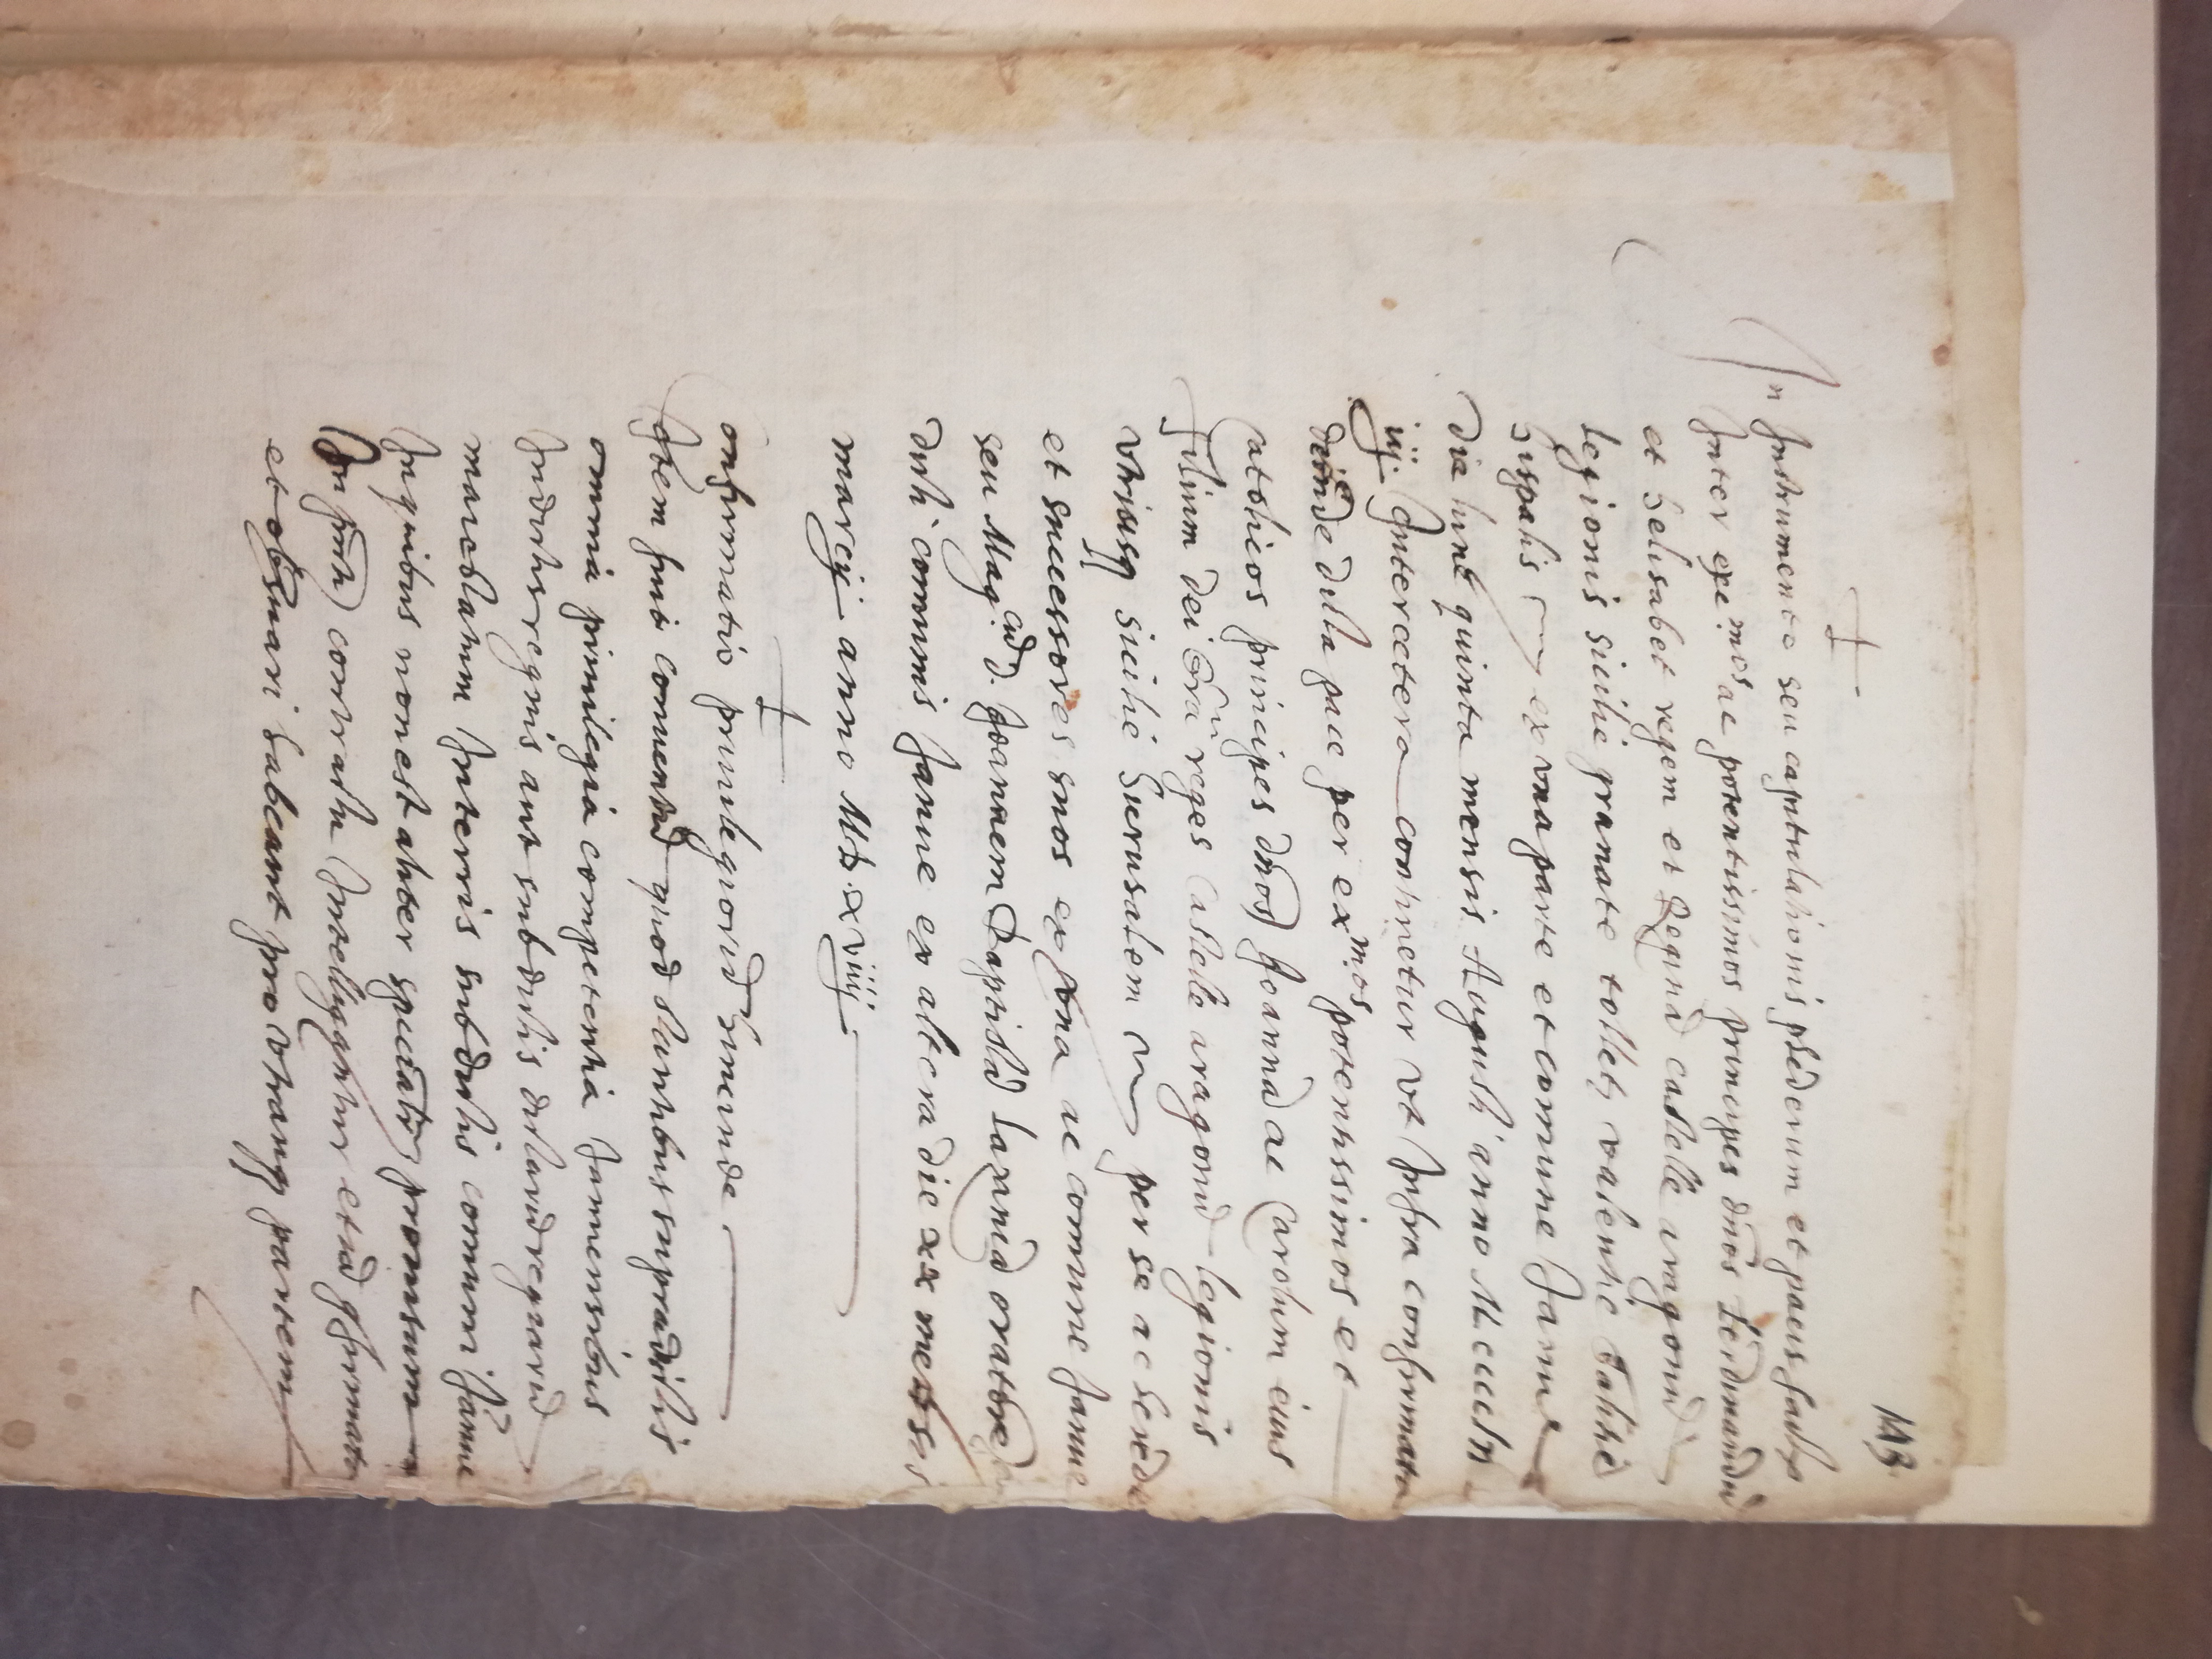 113
In Instrumento seu capitulationis federum et pacis
Inter exc.mos ac potentissimos principes dnos Ferdinandu
et helisabet regem et Reginā castelle aragonū
legionis sicilie granate tolleti valentie Galitie
hispalis ex una parte et comune Janue
die lune quinta mensis Augusti anno
iij Intercetera continetur vt Infra confirmata
deinde dicta pace per exmos potentissimos et
catolicos principes dnos Joannā ac Carolum eius
Filium dei gra reges castelle aragonū legionis
vtriusq sicilie hierusalem per se ac heredes
et successores suos ex vna ac comune Janue
seu Mag.cū d. Joannem Baptistā oratore
dicti comunis Janue ex altera die xx mensis
marcij anno MD.xviiij
confirmatio priuilegiorū Simende
Item fuit conuentū quod stantibus supradictis
omnia priuilegia competentia Januensibus
Indictis regnis aut subditis dictarū regnarū
maiestatum Interris subditis comuni Janue
Inquibus nonest aliter speciatr prouisum
In pnti contractu Intelligantur etiā confirmata
et obseruari habeant pro vtraq partem